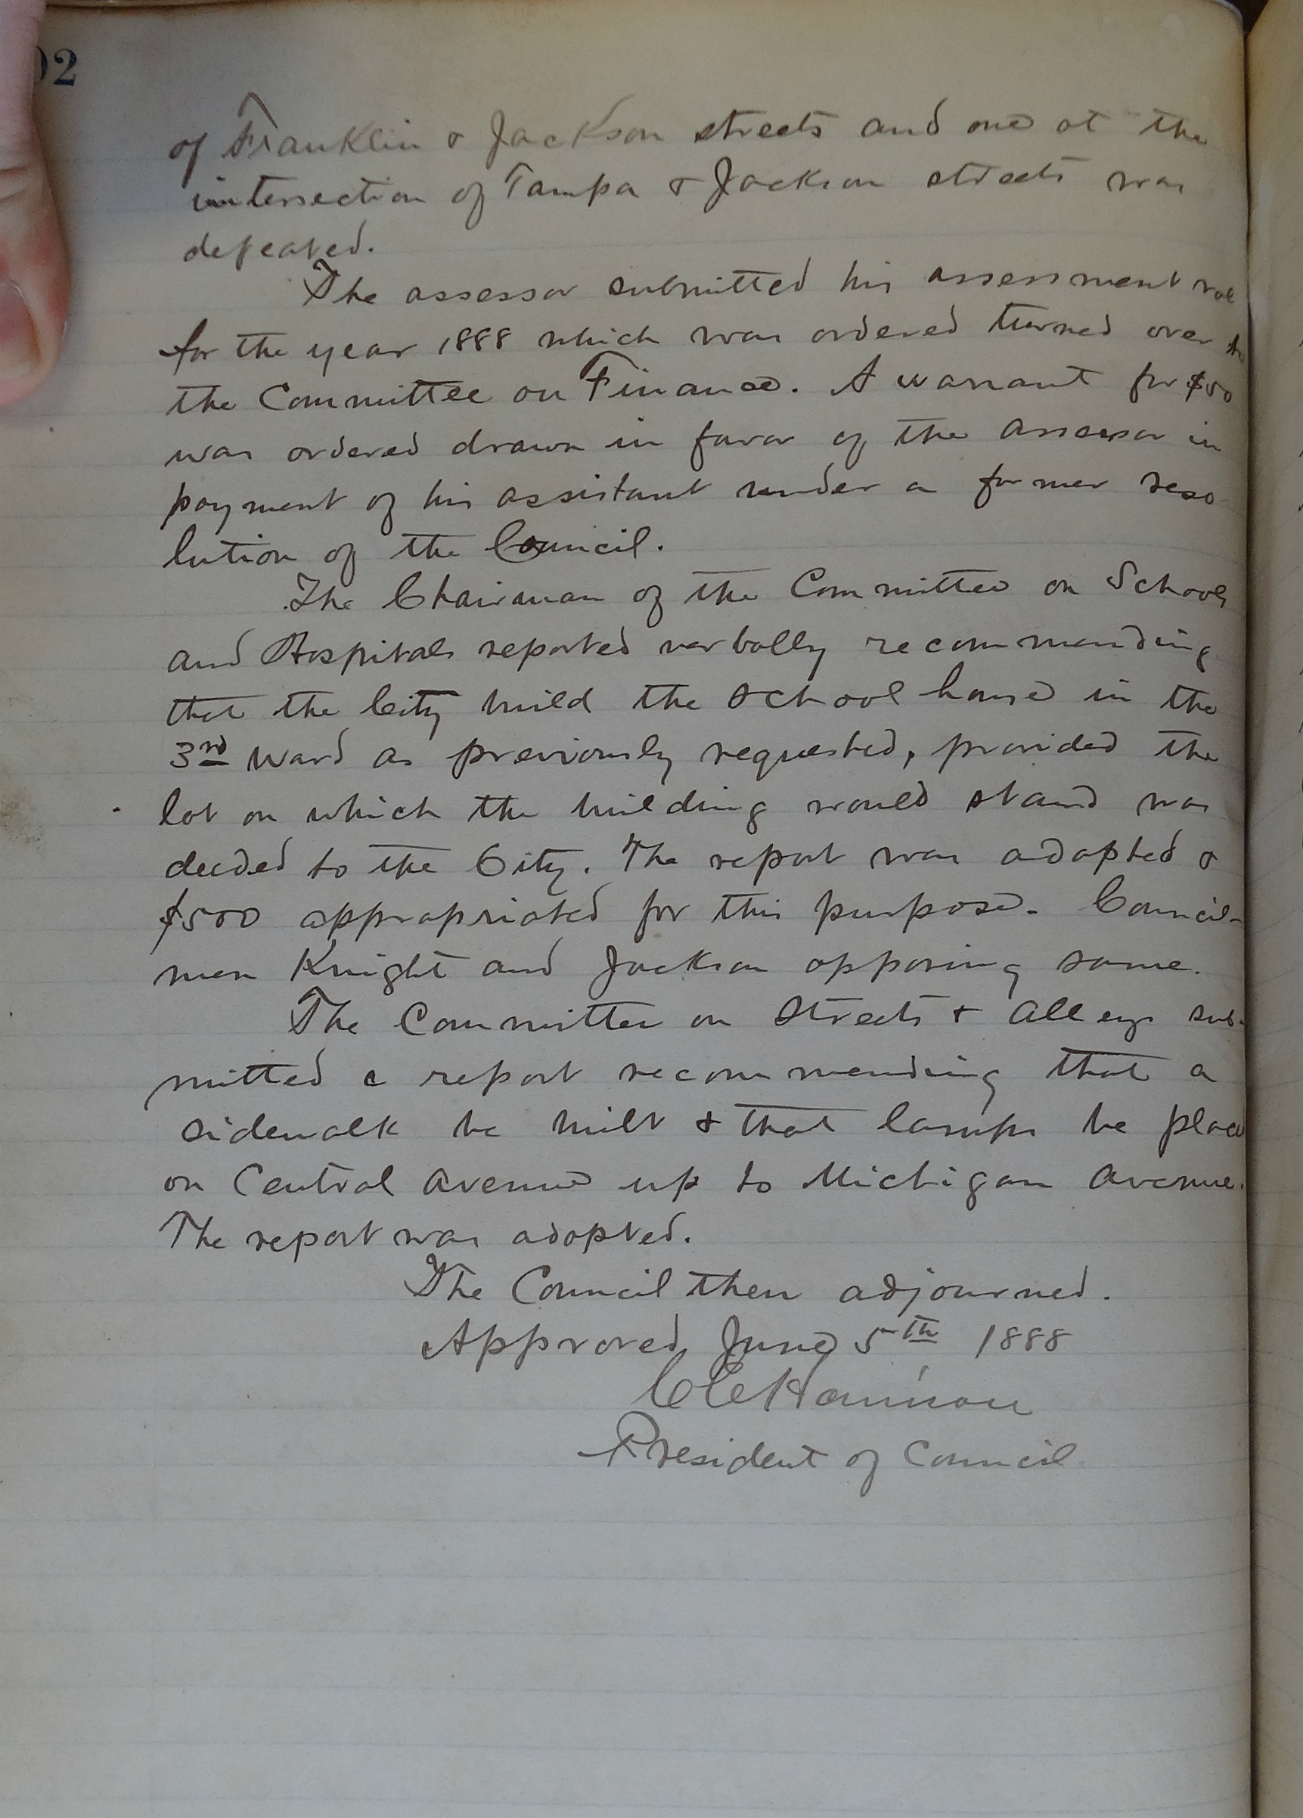 02
of Franklin & Jackson streets and one at the
intersection of Tampa & Jackson streets was
defeated.
The assessor submitted his assessment roll
for the year 1888 which was ordered turned over to
the Committee on Finance. A warrant for $50
was ordered drawn in favor of the assessor in
payment of his assistant under a former reso
lution of the Council.
The Chairman of the Committee on Schools
and Hospitals reported verbally recommending
that the City build the school house in the
3rd ward as previously requested, provided the
lot on which the building would stand was
deeded to the City. The report was adopted &
$500 appropriated for this purpose. Council-
men Knight and Jackson opposing same.
The Committee on Streets & Alleys sub-
mitted a report recommending that a
sidewalk be built & that lamps be place
on Central Avenue up to Michigan Avenue.
The report was adopted.
The Council then adjourned.
Approved June 5th 1888
C E Harrison
President of Council